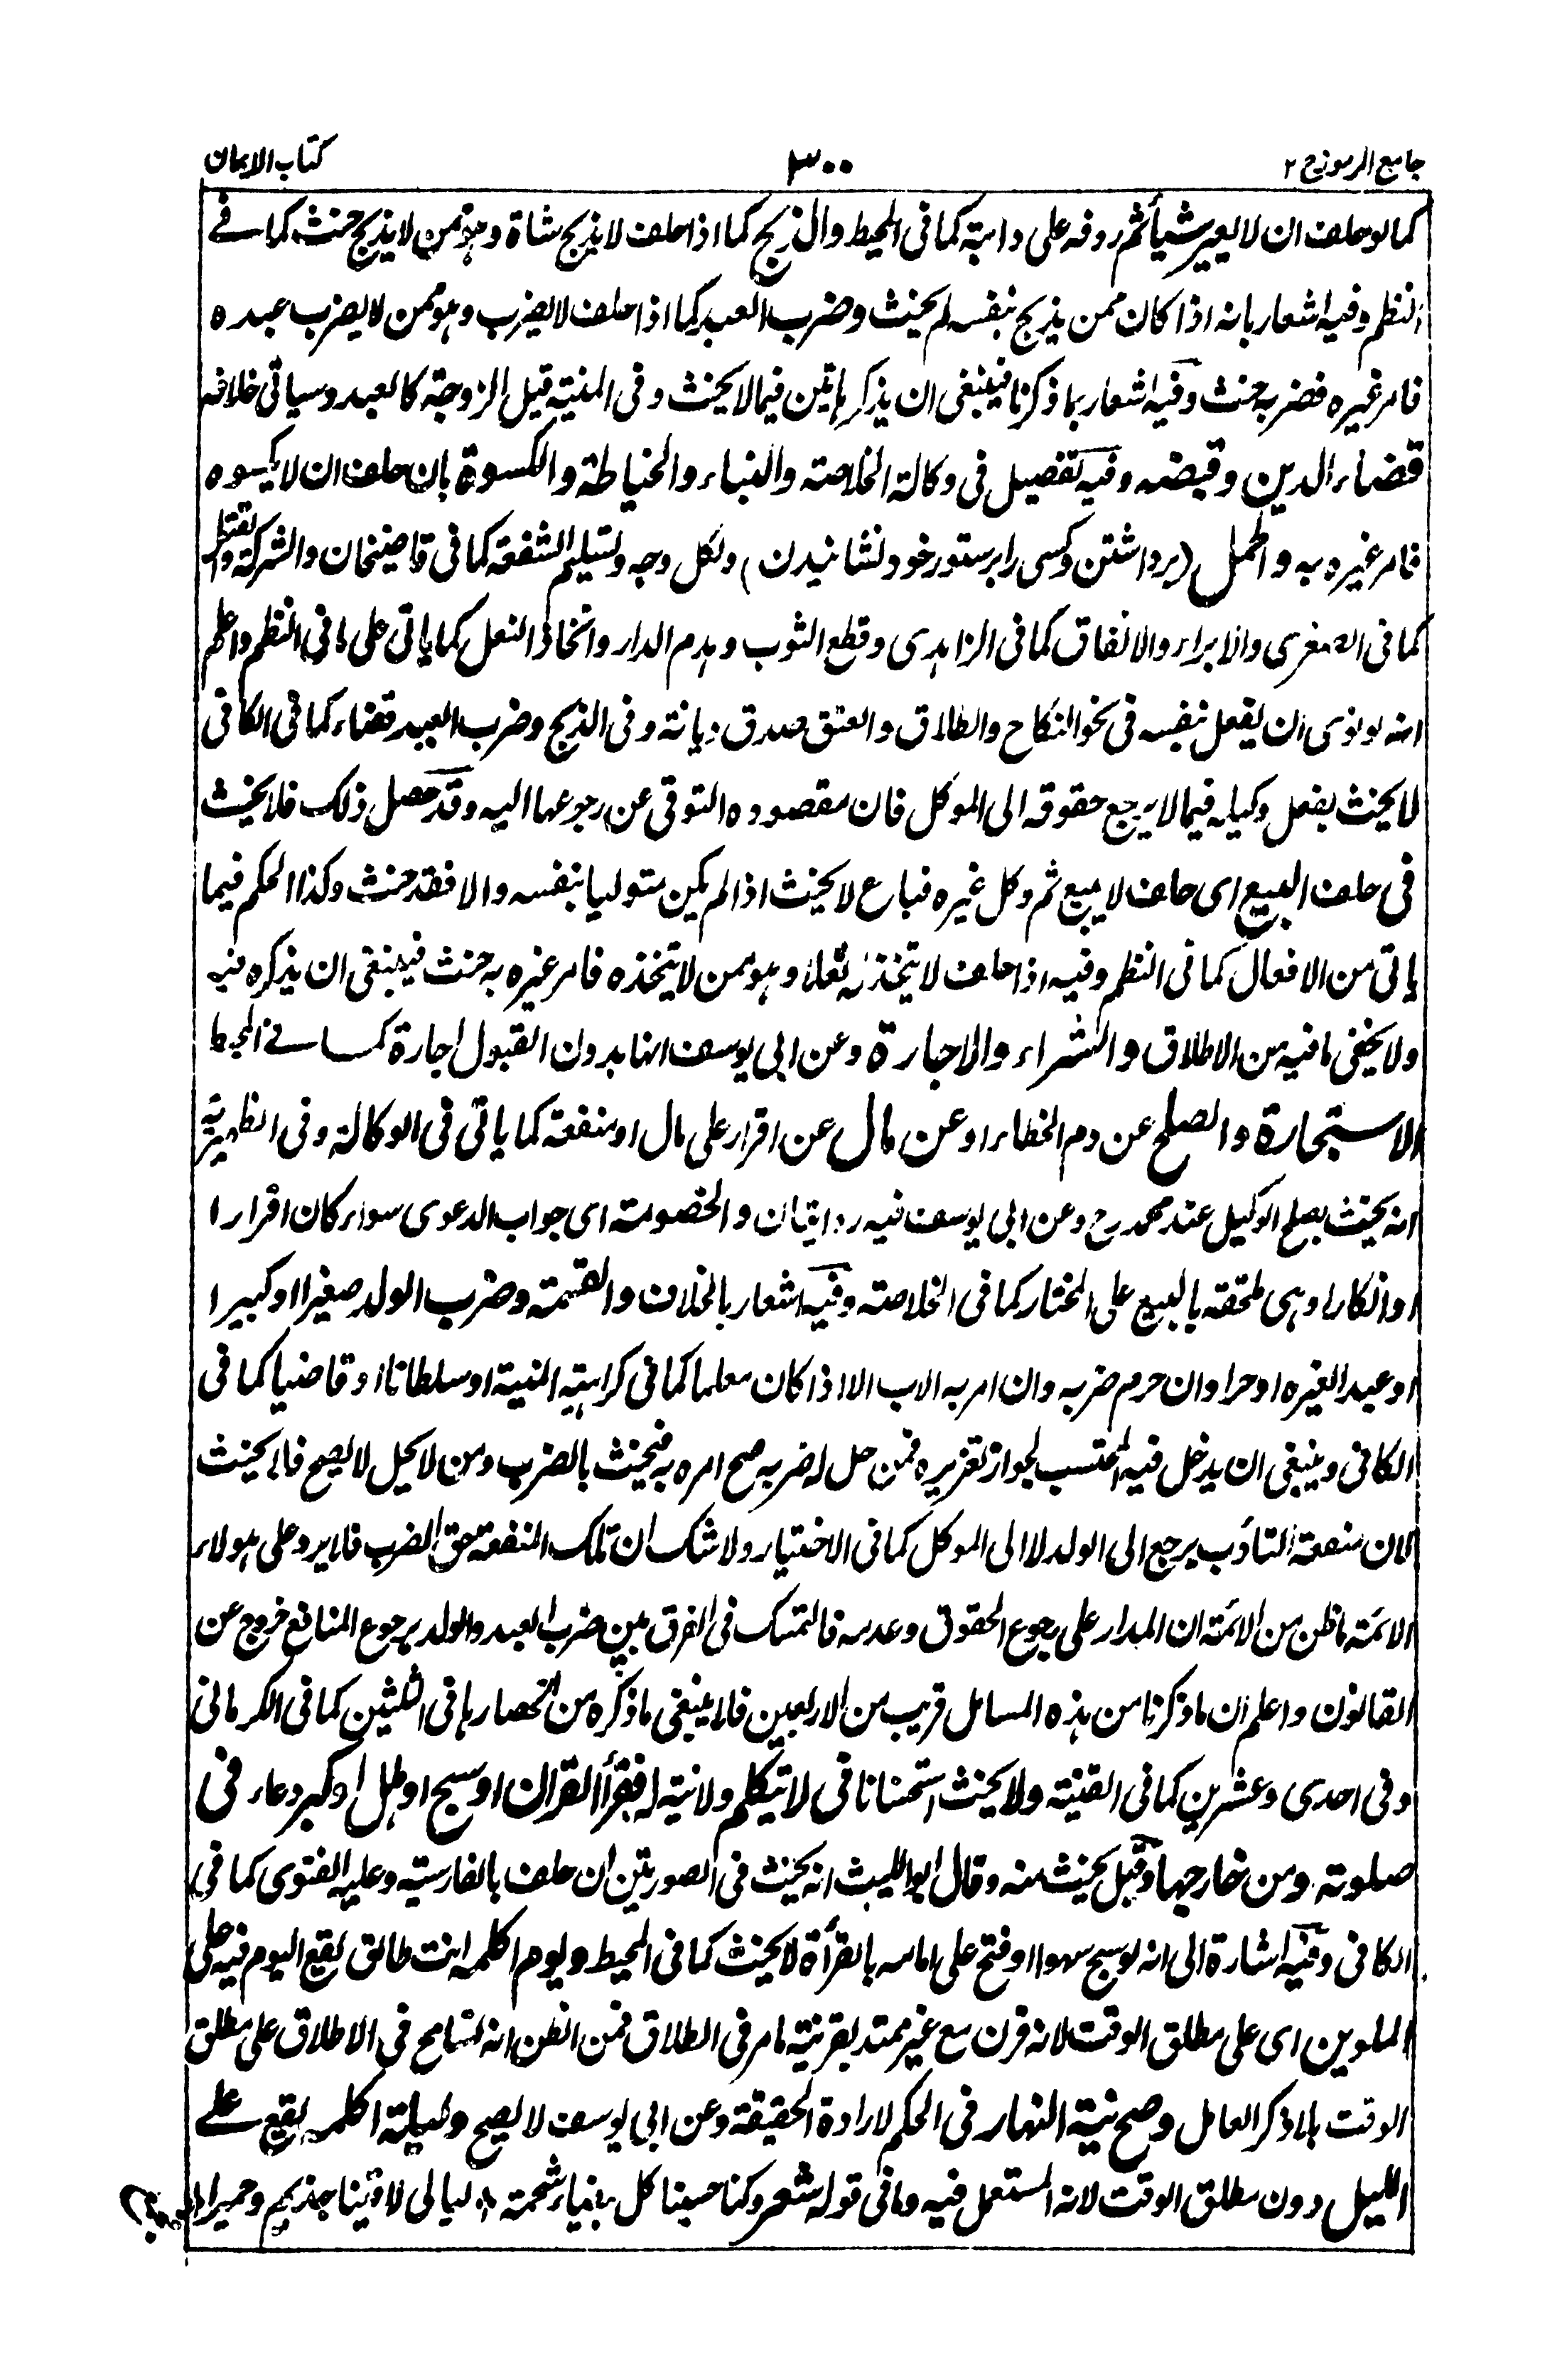 جامع الرموز ج ٢
٣٠٠
كتاب الايمان
كما لو حلف ان لا يعير شيأ ثم ردفه على دابته كما فى المحيط والذبح كما اذا حلف لا يذبح شاة وهو ممن لا يذبح حنث كما فے
النظم وفيه اشعار بانه اذا كان ممن يذبح بنفسه لم يحنث وضرب العبد كما اذا حلف لا يضرب وهو ممن لا يضرب عبده
فامر غيره فضربه حنث وفيه اشعار بما ذكرنا فينبغى ان يذكر هاتين فيما لا يحنث وفى المنية قيل الزوجة كالعبد وسياتى خلافه
قضاء الدين وقبضه وفيه تفصيل فى وكالة الخلاصة والبناء والخياطة والكسوة بان حلف ان لا يكسوه
فامر غيره به والحمل (برداشتن وكسى را برستور خود نشانيدن) ولكل وجه وتسليم الشفعة كما فى قاضيخان والشركة والقتل
كما فى الصغرى والابراء والانفاق كما فى الزاهدى وقطع الثوب وهدم الدار واتخاذ النعل كما ياتى على ما فى النظم واعلم
انه لو نوى ان يفعل بنفسه فى نحو النكاح والطلاق والعتق صدق ديانة وفى الذبح وضرب العبد قضاء كما فى الكافى
لا يحنث بفعل وكيله فيما لا يرجع حقوقه الى الموكل فان مقصوده التوقى عن رجوعها اليه وقد حصل ذلك فلا يحنث
فى حلف البيع اى حلف لا يبيع ثم وكل غيره فباع لا يحنث اذا لم يكن متوليا بنفسه والا فقد حنث وكذا الحكم فيما
ياتى من الافعال كما فى النظم وفيه اذا حلف لا يتخذ نعلا وهو ممن لا يتخذه فامر غيره به حنث فينبغى ان يذكره فيه
ولا يخفى ما فيه من الاطلاق والشراء والاجارة وعن ابى يوسف انها بدون القبول اجارة كما فے المحيط
الاستجارة والصلح عن دم الخطاء او عن مال عن اقرار على مال او منفعة كما ياتى فى الوكالة وفى الظهيرية
انه يحنث بصلح الوكيل عند محمد رح وعن ابى يوسف فيه روايتان والخصومة اى جواب الدعوى سواء كان اقرارا
او انكارا وهى ملحقة بالبيع على المختار كما فى الخلاصة وفيه اشعار بالخلاف والقسمة وضرب الولد صغيرا او كبيرا
او عبد الغيره او حرا وان حرم ضربه وان امر به الاب الا اذا كان معلما كما فى كراهية المنية او سلطانا او قاضيا كما فى
الكافى وينبغى ان يدخل فيه المحتسب لجواز تعزيره فمن حل له ضربه صح امره به فيحنث بالضرب ومن لا يحل لا يصح فلا يحنث
لان منفعة التأدب يرجع الى الولد لا الى الموكل كما فى الاختيار ولا شك ان تلك المنفعة حق الضرب فلا يرد على هولاء
الائمة ما ظن من الائمة ان المدار على رجوع الحقوق وعدمه فالتمسك فى الفرق بين ضرب العبد والولد برجوع المنافع خروج عن
القانون واعلم ان ما ذكرنا من هذه المسائل قريب من الاربعين فلا ينبغى ما ذكره من انحصارها فى الثلثين كما فى الكرمانى
وفى احدى وعشرين كما فى القنية ولا يحنث استحسانا فى لا يتكلم ولا نية له فقرأ القران او سبح او هلل او كبر دعاء فى
صلوته ومن خارجها وقيل يحنث منه وقال ابو الليث انه يحنث فى الصورتين ان حلف بالفارسية وعليه الفتوى كما فى
الكافى وفيه اشارة الى انه لو سبح سهوا او فتح على امامه بالقرأة لا يحنث كما فى المحيط ويوم اكلمه انت طالق يقع اليوم فيه على
الملوين اى على مطلق الوقت لانه قرن مع غير ممتد بقرينة ما مر فى الطلاق فمن الظن انه تسامح فى الاطلاق على مطلق
الوقت بلا ذكر العامل وصح نية النهار فى الحكم لارادة الحقيقة وعن ابى يوسف لا يصح وليلة اكلمه يقع علے
الليل دون مطلق الوقت لانه المستعمل فيه وما فى قوله شعر وكنا حسبنا كل بيضاء شحمة ۞ ليالى لاقينا جذيم وحميرا